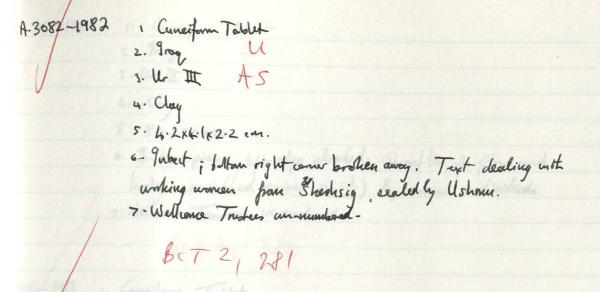 A.3082-1982 1. Cuneiform Tablet
2. Iraq U
3. Ur III AS
4. Clay
5. 4.2x4.1x2.2 cm.
6. Intact; bottom right corner broken away. Text dealing with
working women from Sheshsig, sealed by Ushmu.
7. Wellcome Trustees un-numbered-
BCT 2, 281